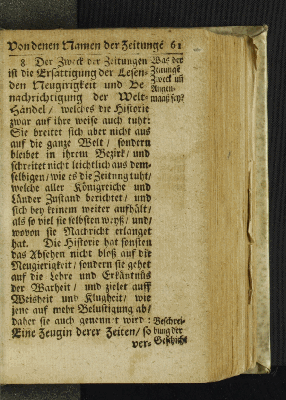 Von denen Namen der Zeitungē 61
8 Der Zweck der Zeitungen
ist die Ersättigung der Lesen-
den Neugirigkeit und Be-
nachrichtigung der Welt-
Händel / welches die Historie
zwar auf ihre weise auch tuht:
Sie breitet sich aber nicht aus
auf die ganze Welt / sondern
bleibet in ihrem Bezirk / und
schreitet nicht leichtlich aus dem-
selbigen / wie es die Zeitung tuht /
welche aller Königreiche und
Länder Zustand berichtet / und
sich bey keinem weiter aufhält /
als so viel sie selbsten weyß / und
wovon sie Nachricht erlanget
hat. Die Historie hat sonsten
das Absehen nicht bloß auf die
Neugierigkeit / sondern sie gehet
auf die Lehre und Erkäntnüs
der Warheit / und zielet auff
Weisheit und Klugheit / wie
jene auf mehr Belustigung ab /
daher sie auch genennet wird:
Eine Zeugin derer Zeiten / so
ver-
Was der
Zeitungē
Zweck uñ
Augen-
maaß sey?
Beschrei-
bung der
Geschicht